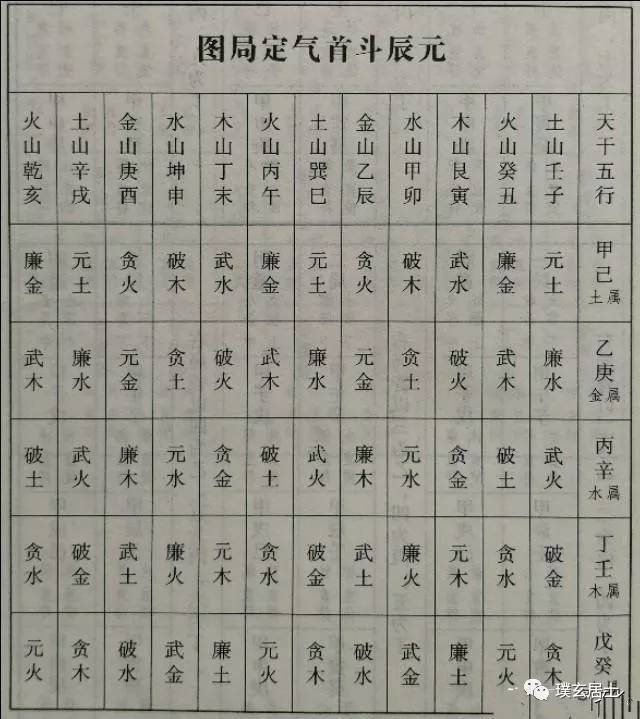 元辰斗首气定局图
天干五行 土山壬子 火山癸丑 木山艮寅 水山甲卯 金山乙辰 土山巽巳 火山丙午 木山丁末 水山坤申 金山庚酉 土山辛戌 火山乾亥
甲己属土 元土 廉金 武水 破木 贪火 元土 廉金 武水 破木 贪火 元土 廉金
乙庚属金 廉水 武木 破火 贪土 元金 廉水 武木 破火 贪土 元金 廉水 武木
丙辛属水 武火 破土 贪金 元水 廉木 武火 破土 贪金 元水 廉木 武火 破土
丁壬属木 破金 贪水 元木 廉火 武土 破金 贪水 元木 廉火 武土 破金 贪水
戊癸 贪木 元火 廉土 武金 破水 贪木 元火 廉土 武金 破水 贪木 元火
璞玄居士